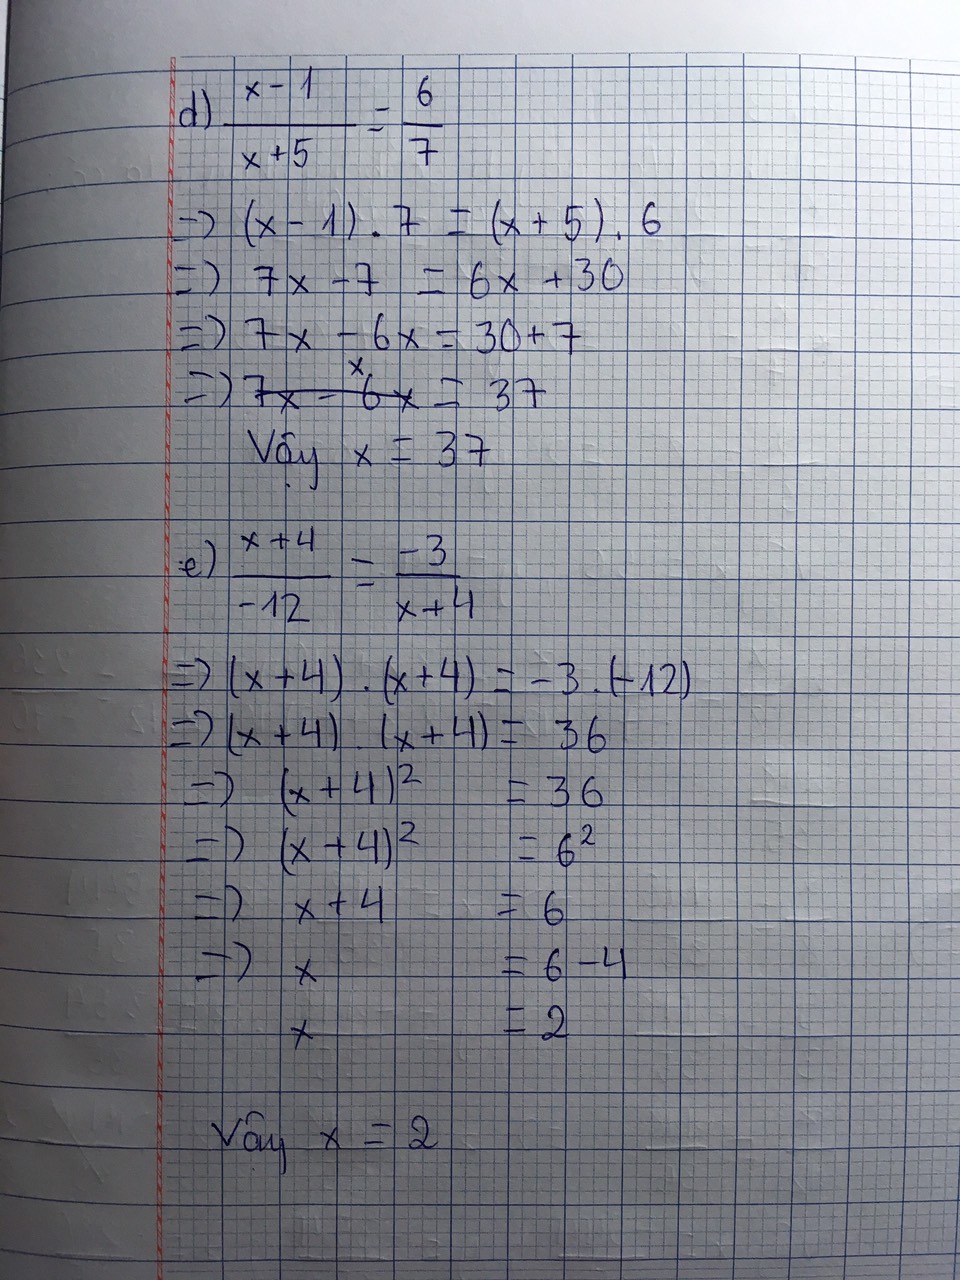 d) (x-1)/(x+5) = 6/7
=> (x - 1) . 7 = (x + 5) . 6
=> 7x - 7 = 6x + 30
=> 7x - 6x = 30 + 7
x
=> 7x - 6x = 37
Vậy x = 37
e) (x+4)/(-12) = (-3)/(x+4)
=> (x + 4) . (x + 4) = -3 . (-12)
=> (x + 4) . (x + 4) = 36
=> (x + 4)² = 36
=> (x + 4)² = 6²
=> x + 4 = 6
=> x = 6 - 4
x = 2
Vậy x = 2